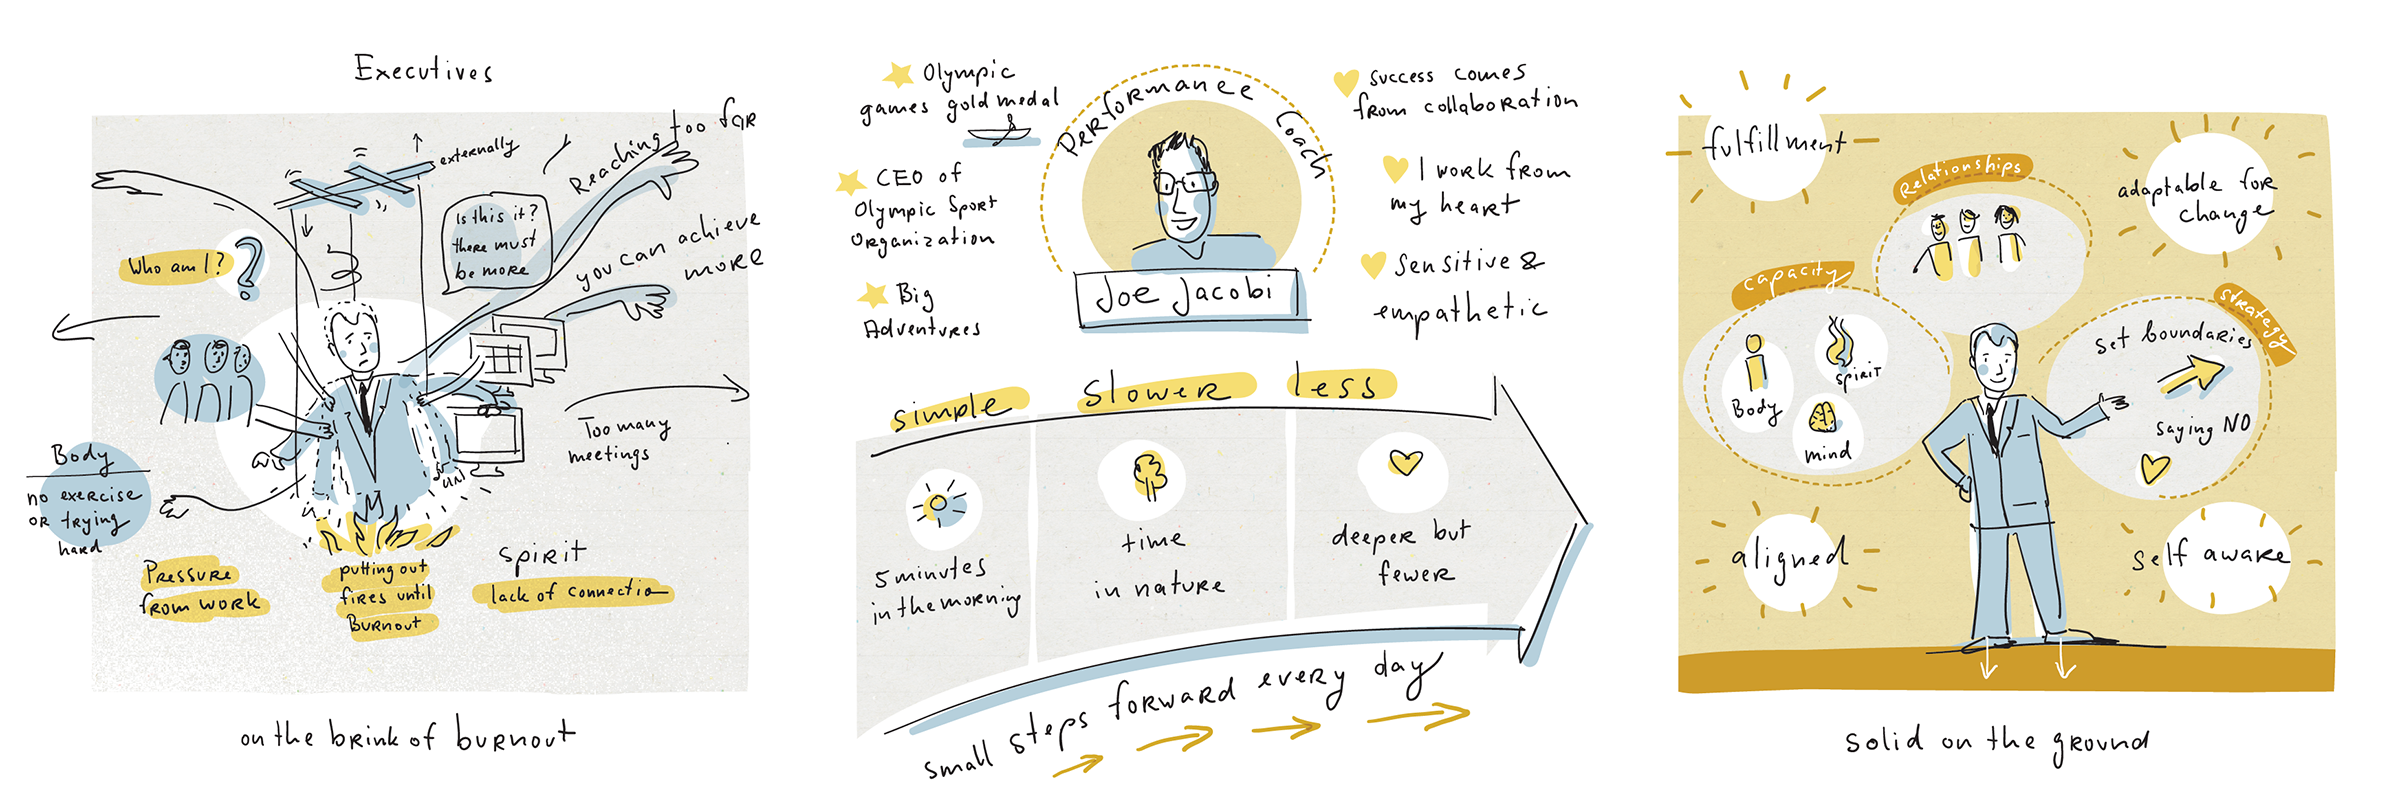 Executives
externally
Reaching too far
Is this it?
there must
be more
you can achieve
more
Who am I?
Too many
meetings
Body
no exercise
or trying
hard
Pressure
from work
putting out
fires until
Burnout
spirit
lack of connectio
on the brink of burnout
Olympic
games gold medal
CEO of
Olympic Sport
Organization
Big
Adventures
Performance Coach
Joe Jacobi
success comes
from collaboration
I work from
my heart
sensitive &
empathetic
simple
slower
less
5 minutes
in the morning
time
in nature
deeper but
fewer
small steps forward every day
fulfillment
Relationships
adaptable for
change
capacity
Body
spirit
mind
strategy
set boundaries
saying NO
aligned
self aware
solid on the ground